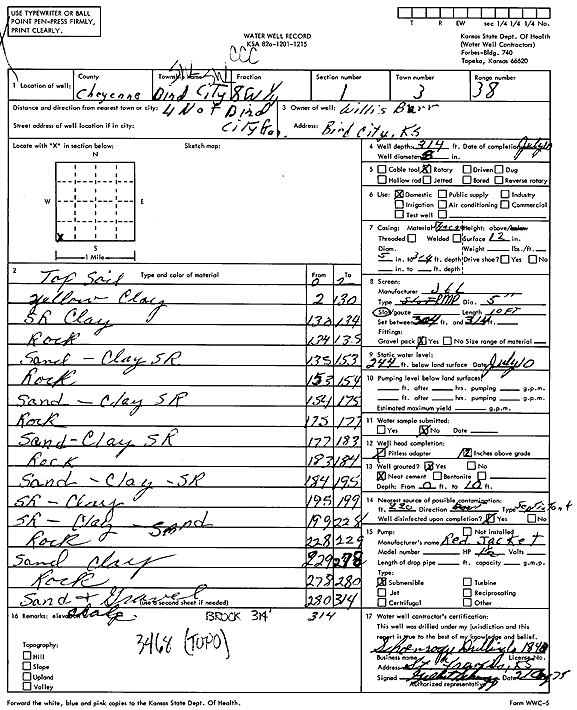 USE TYPEWRITER OR BALL
POINT PEN-PRESS FIRMLY,
PRINT CLEARLY.
WATER WELL RECORD
KSA 82a-1201-1215
T R EW sec 1/4 1/4 1/4 No.
Kansas State Dept. Of Health
(Water Well Contractors)
Forbes-Bldg. 740
Topeka, Kansas 66620
CCC
1 Location of well: County Cheyenne Township Name Bird City Fraction Section number 1 Town number 3 Range number 38
Distance and direction from nearest town or city: 4 N of Bird City
Street address of well location if in city:
3 Owner of well: Willis Burr
Address: Bird City, KS
Locate with "X" in section below: Sketch map:
N
W E
X
S
1 Mile
4 Well depth: 314 ft. Date of completion July 10
Well diameter 8 in.
5 Cable tool X Rotary Driven Dug
Hollow rod Jetted Bored Reverse rotary
6 Use: X Domestic Public supply Industry
Irrigation Air conditioning Commercial
Test well
7 Casing: Material Height: above/below
Threaded Welded Surface 12 in.
Diam. Weight lbs./ft.
5 in. to 314 ft. depth Drive shoe? Yes No
in. to ft. depth
8 Screen:
Manufacturer
Type PMP Dia. 5"
Slot/gauze Length 10 FT
Set between 304 ft. and 314 ft.
Fittings:
Gravel pack X Yes No Size range of material
9 Static water level:
244 ft. below land surface Date July 10
10 Pumping level below land surfaces:
ft. after hrs. pumping g.p.m.
ft. after hrs. pumping g.p.m.
Estimated maximum yield g.p.m.
11 Water sample submitted:
Yes X No Date
12 Well head completion:
Pitless adapter 12 Inches above grade
13 Well grouted? X Yes No
X Neat cement Bentonite
Depth: From 0 ft. to 10 ft.
14 Nearest source of possible contamination:
ft. 220 Direction Type Septic Tank
Well disinfected upon completion? Yes No
15 Pump: Not installed
Manufacturer's name Red Jacket
Model number HP 1½ Volts
Length of drop pipe ft. capacity g.m.p.
Type:
X Submersible Turbine
Jet Reciprocating
Certrifugal Other
2 Type and color of material From To
Top Soil 0 2
Yellow Clay 2 130
SR Clay 130 134
Rock 134 135
Sand - Clay SR 135 153
Rock 153 154
Sand - Clay SR 154 175
Rock 175 177
Sand-Clay SR 177 183
Rock 183 184
Sand - Clay - SR 184 195
SR - Clay 195 199
SR - Clay - Sand 199 228
Rock 228 229
Sand Clay 229 278
Rock 278 280
Sand & Gravel 280 314
(use a second sheet if needed)
16 Remarks: elevation BROCK 314' 314
3468 (TOPO)
Topography:
Hill
Slope
Upland
Valley
17 Water well contractor's certification:
This well was drilled under my jurisdiction and this
report is true to the best of my knowledge and belief.
Business name License No.
Address St. Francis, KS
Signed Date
Authorized representative
Forward the white, blue and pink copies to the Kansas State Dept. Of Health.
Form WWC-5